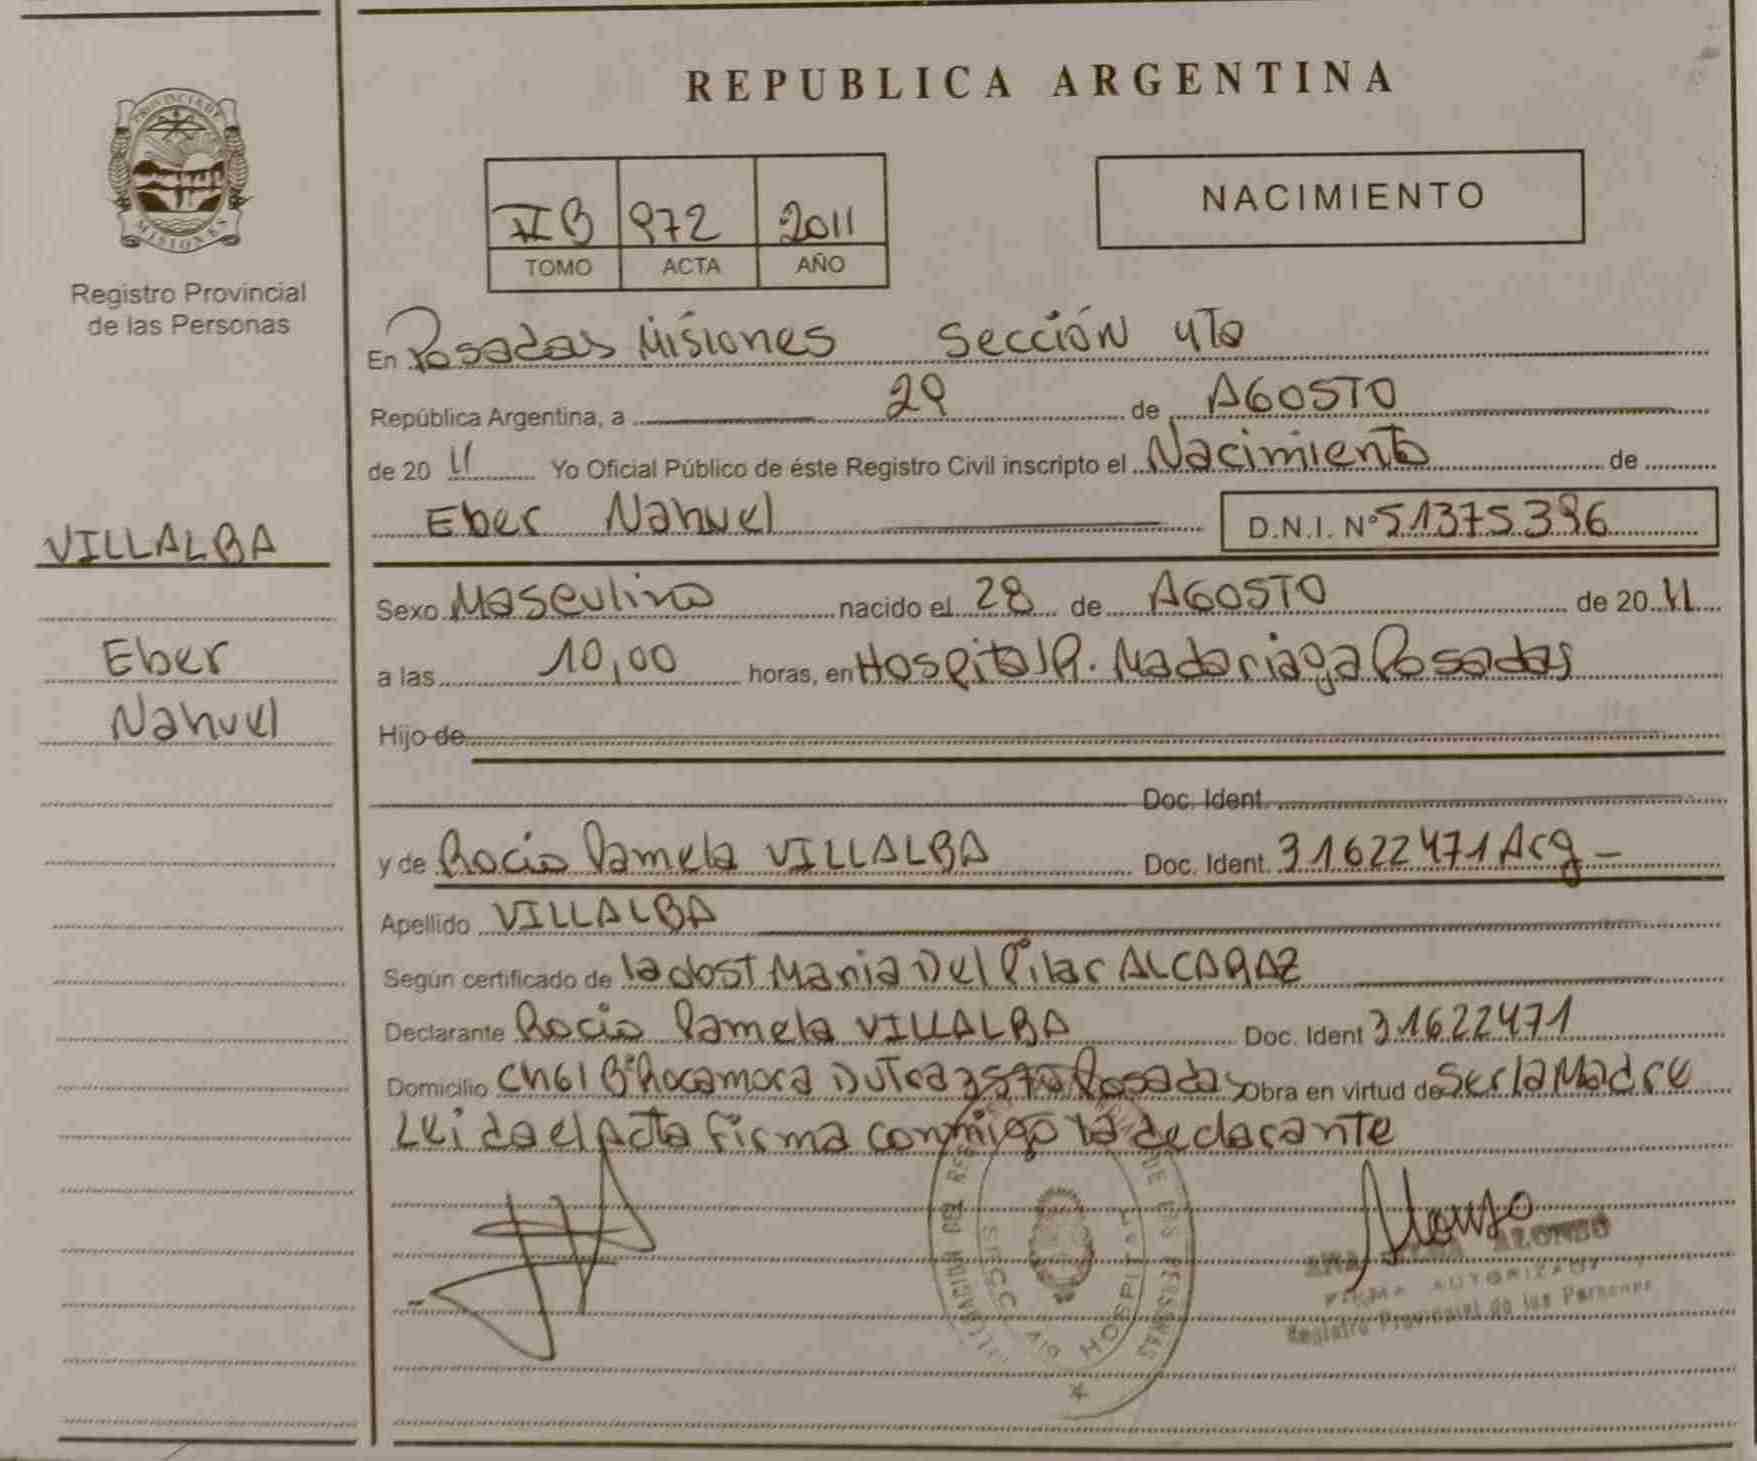 REPUBLICA ARGENTINA
PROVINCIA DE MISIONES
Registro Provincial
de las Personas
IIB 972 2011
TOMO ACTA AÑO
NACIMIENTO
En Posadas Misiones Sección 4to
República Argentina, a 29 de AGOSTO
de 20 11 Yo Oficial Público de éste Registro Civil inscripto el Nacimiento de
Eber Nahuel D.N.I. Nº 51375396
VILLALBA
Eber
Nahuel
Sexo Masculino nacido el 28 de AGOSTO de 20 11
a las 10,00 horas, en Hospital R. Madariaga Posadas
Hijo de
Doc. Ident.
y de Rocio Pamela VILLALBA Doc. Ident. 31622471 Arg -
Apellido VILLALBA
Según certificado de la obst Maria Del Pilar ALCARAZ
Declarante Rocio Pamela VILLALBA Doc. Ident 31622471
Domicilio CH61 Bº Rocamora Dutra 3570 Posadas Obra en virtud de Ser la Madre
Leida el Acta firma conmigo la declarante
Alonso
ALONSO
FIRMA AUTORIZADA
Registro Provincial de las Personas
DE LAS PERSONAS
SECC 4ta HOSPITAL